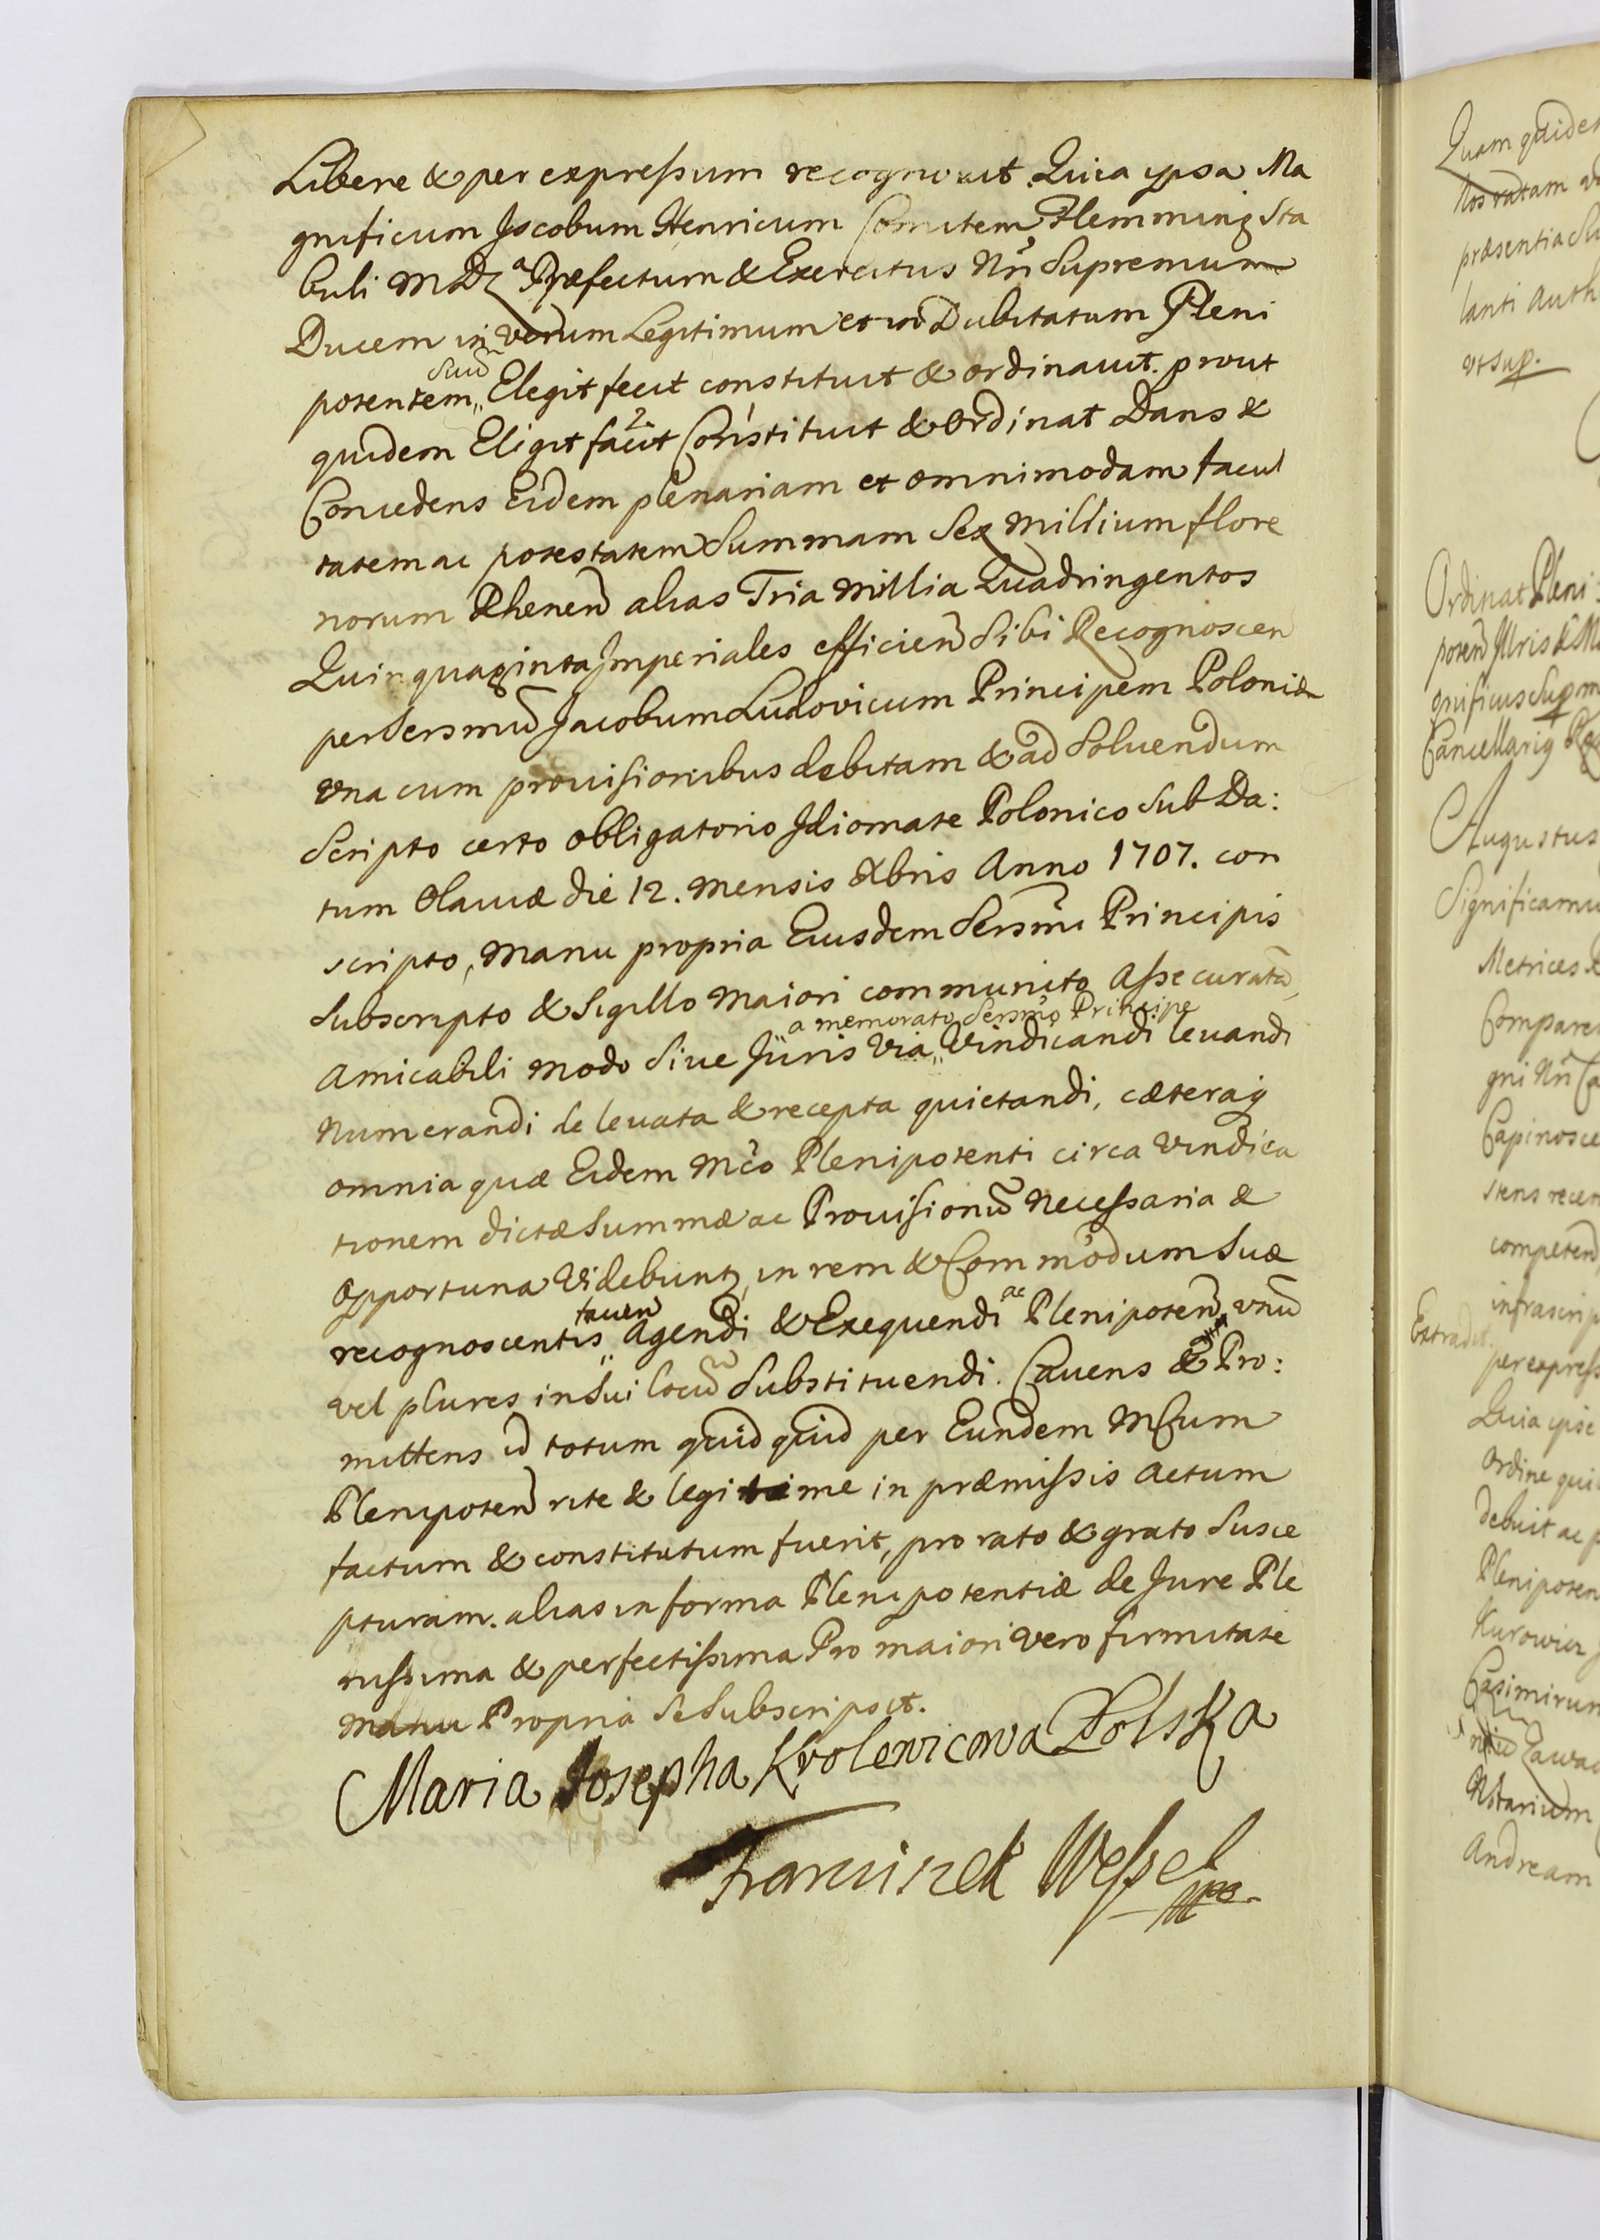 Libere & per expressum recognovit. Quia ipsa Ma
gnificum Jacobum Henricum Comitem Flemming Sta
buli MDL Præfectum & Exercitus Nri Supremum
Ducem in verum Legitimum et indubitatum Pleni
potentem suũ Elegit fecit constituit & ordinavit. prout
quidem Eligit facit Constituit & Ordinat Dans &
Concedens Eidem plenariam et omnimodam facul
tatem ac potestatem Summam Sex Millium flore
norum Rhenen alias Tria Millia Quadringentos
Quinquaginta Imperiales efficien Sibi Recognoscen
per Sersmũ Jacobum Ludovicum Principem Poloniæ
vna cum provisionibus debitam & ad Soluendum
Scripto certo obligatorio Idiomate Polonico Sub Da:
tum Olaviæ die 12. Mensis Xbris Anno 1707. con
scripto, Manu propria Eiusdem Sersmi Principis
Subscripto & Sigillo Maiori communito Assecuratã,
Amicabili Modo Sive Juris Via a memorato Sersmo Principe Vindicandi levandi
Numerandi de levata & recepta quietandi, cæteraq
omnia quæ Eidem Mco Plenipotenti circa Vindica
tionem dictæ Summæ ac Provisionũ Necessaria &
Opportuna Videbunt in rem & Commodum Suæ
recognoscentis tamen Agendi & Exequendi ac Plenipoten vnũ
vel plures in Sui locũ Substituendi. Cavens & Pro:
mittens id totum quidquid per Eundem MCum
Plenipoten rite & legitime in præmissis Actum
factum & constitutum fuerit, pro rato & grato Susce
pturam. alias in forma Plenipotentiæ de Jure Ple
nissima & perfectissima Pro maiori vero firmitate
Manu Propria Se Subscripsit.
Maria Josepha Krolewicowa Polska
Franciszek Wessel
mp
Quam quidem
Nos ratam
præsentia
lanti Auth
vt sup.
Ordinat Pleni:
poten Illris & Ma
gnificus Supm
Cancellariq Reg
Augustus
Significamu
Metrices
Compare
gni Nri Ca
Capinosce
stens recen
competen
infrascrip
Extradit.
per express
Quia ipse
Ordine qui
debuit ac p
Plenipoten
Kurowicz
Casimirum
Zawad
Notarium
Andream